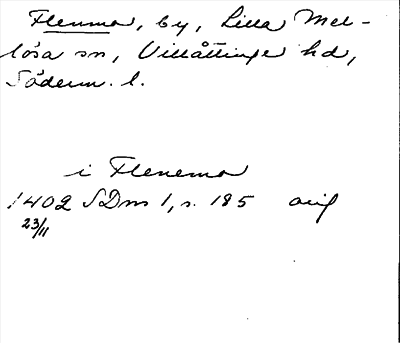 Flenmo, by, Lilla Mel-
lösa sn, Villåttinge hd,
Söderm. l.
i Flenemo
1402 SDns 1, s. 185 orig
23/11